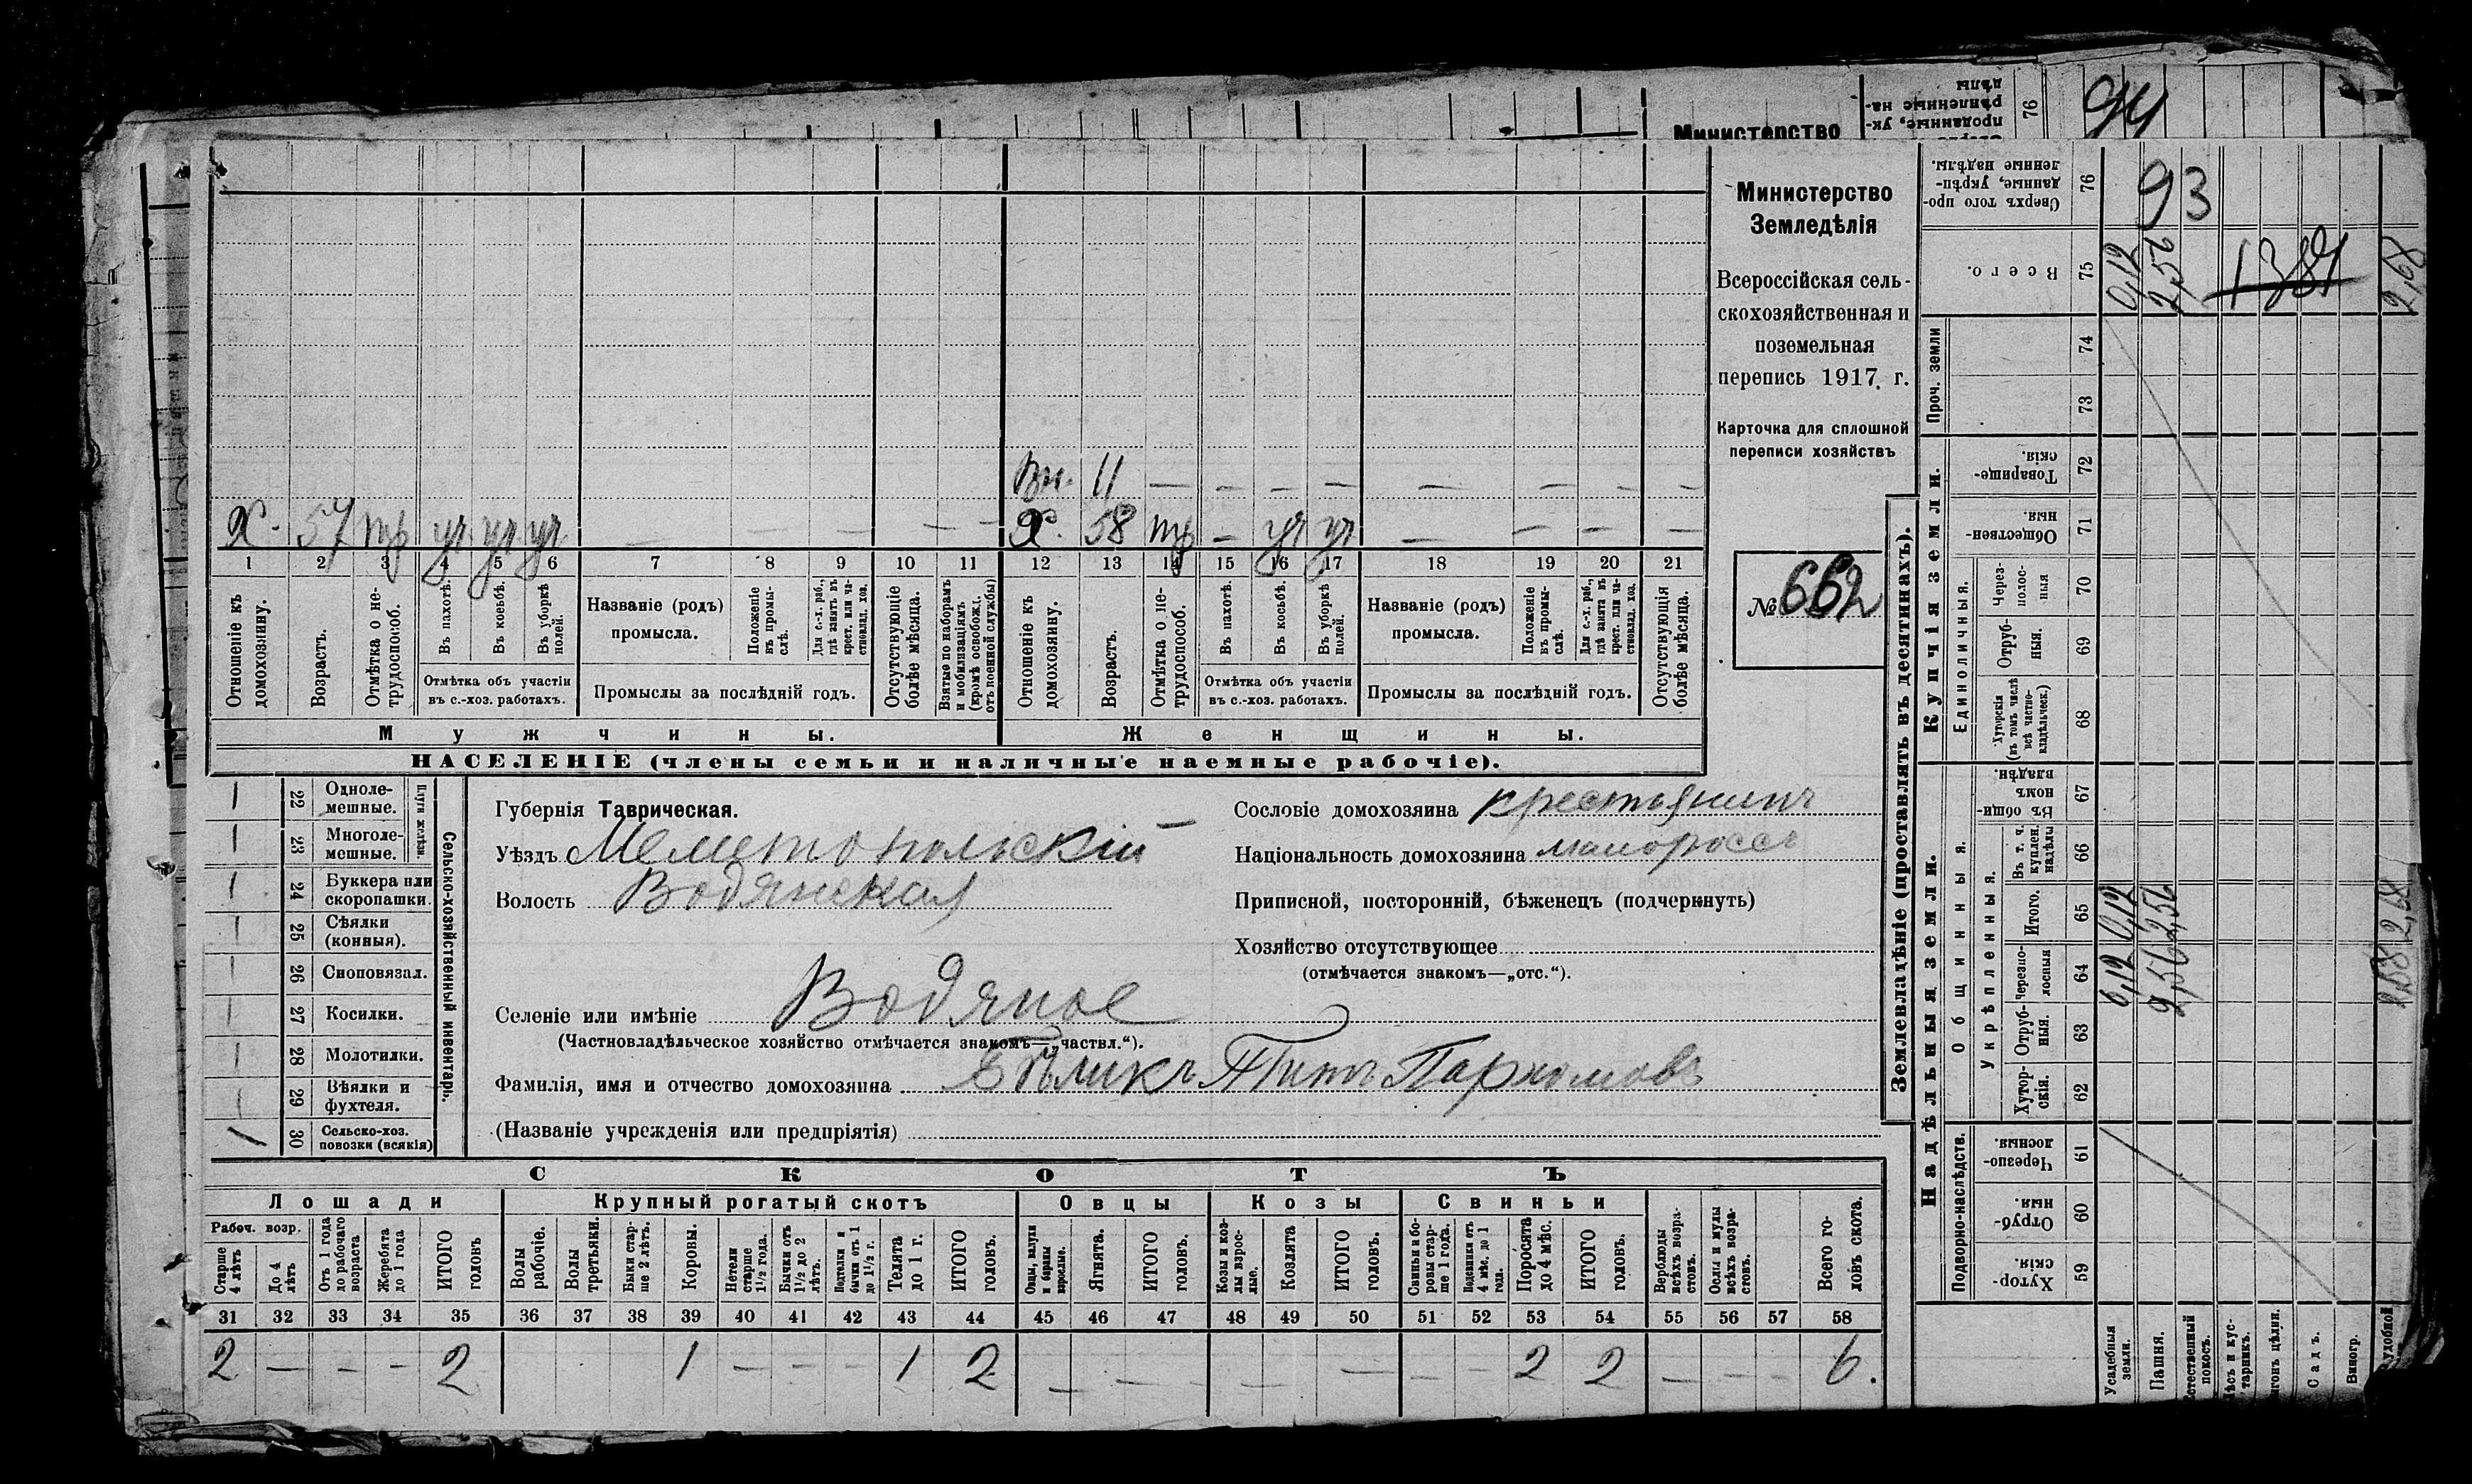 Министерство
Сверхъ того про-
данные, укрѣп-
ленные надѣлы.
76
94
Министерство
Земледѣлія
Всероссійская сель-
скохозяйственная и
поземельная
перепись 1917 г.
Карточка для сплошной
переписи хозяйствъ
№ 662
Вн. 11 — — — — — — — —
Х. 57 тр уч уч уч — — — — — Х. 58 тр — уч уч — — — —
1 2 3 4 5 6 7 8 9 10 11 12 13 14 15 16 17 18 19 20 21
Отношеніе къ домохозяину.
Возрастъ.
Отмѣтка о не-трудоспособ.
Въ пахотѣ.
Въ косьбѣ.
Въ уборкѣ полей.
Отмѣтка объ участіи
въ с.-хоз. работахъ.
Названіе (родъ)
промысла.
Положеніе въ промы-слѣ.
Для с.-х. раб., гдѣ занятъ въ крест. или ча-стновлад. хоз.
Промыслы за послѣдній годъ.
Отсутствующіе болѣе мѣсяца.
Взятые по наборамъ и мобилизаціямъ (кромѣ освобожд. отъ военной службы)
Отношеніе къ домохозяину.
Возрастъ.
Отмѣтка о не-трудоспособ.
Въ пахотѣ.
Въ косьбѣ.
Въ уборкѣ полей.
Отмѣтка объ участіи
въ с.-хоз. работахъ.
Названіе (родъ)
промысла.
Положеніе въ промы-слѣ.
Для с.-х. раб., гдѣ занята въ крест. или ча-стновлад. хоз.
Промыслы за послѣдній годъ.
Отсутствующія болѣе мѣсяца.
Мужчины. Женщины.
НАСЕЛЕНІЕ (члены семьи и наличные наемные рабочіе).
22 Одноле-мешные.
23 Многоле-мешные.
Плуги желѣзн.
24 Буккера или скоропашки.
25 Сѣялки (конныя).
26 Сноповязал.
27 Косилки.
28 Молотилки.
29 Вѣялки и фухтеля.
1 30 Сельско-хоз. повозки (всякія)
Сельско-хозяйственный инвентарь.
Губернія Таврическая.
Уѣздъ Мелитопольскій
Волость Водянская
Селеніе или имѣніе Водяное
(Частновладѣльческое хозяйство отмѣчается знакомъ—„частвл.“).
Фамилія, имя и отчество домохозяина Бѣликъ Титъ Пархомовъ
(Названіе учрежденія или предпріятія)
Сословіе домохозяина крестьянинъ
Національность домохозяина малороссъ
Приписной, посторонній, бѣженецъ (подчеркнуть)
Хозяйство отсутствующее
(отмѣчается знакомъ—„отс.“).
СКОТЪ
Лошади Крупный рогатый скотъ Овцы Козы Свиньи
Рабоч. возр.
Старше 4 лѣтъ
До 4 лѣтъ
Отъ 1 года до рабочаго возраста
Жеребята до 1 года
ИТОГО головъ
Волы рабочіе.
Волы третьяки.
Быки стар-ше 2 лѣтъ.
Коровы.
Нетели старше 1½ года.
Бычки отъ 1½ до 2 лѣтъ.
Подтелки и бычки отъ 1 до 1½ г.
Телята до 1 г.
ИТОГО головъ.
Овцы, валухи и бараны взрослые.
Ягнята.
ИТОГО головъ.
Козы и коз-лы взрос-лые.
Козлята
ИТОГО головъ.
Свиньи и бо-ровы стар-ше 1 года.
Подсвинки отъ 4 мѣс. до 1 года.
Поросята до 4 мѣс.
ИТОГО головъ.
Верблюды всѣхъ возра-стовъ.
Ослы и мулы всѣхъ возра-стовъ.
Всего го-ловъ скота.
31 32 33 34 35 36 37 38 39 40 41 42 43 44 45 46 47 48 49 50 51 52 53 54 55 56 57 58
2 — — — 2 1 — — — 1 2 — — — — — — — 2 2 — — — 6.
Землевладѣніе (проставлять въ десятинахъ).
Сверхъ того про-данные, укрѣп-ленные надѣлы. 76 93
Всего. 75 0,12 2,56 1381 2,68
Проч. земли
74
73
Купчія земли.
Товарище-скія. 72
Обществен-ныя. 71
Единоличныя.
Через-полос-ныя 70
Отруб-ныя. 69
Хуторскія (въ томъ числѣ всѣ частно-владѣльческ.) 68
Надѣльныя земли.
Общинныя.
Въ общи-номъ владѣн. 67
Укрѣпленныя.
Въ т. ч. куплен. надѣлы 66
Итого. 65 0,12 2,56 2,68
Черезпо-лосныя 64 0,12 2,56
Отруб-ныя. 63
Хутор-скія. 62
Подворно-наслѣдств.
Черезпо-лосныя. 61
Отруб-ныя. 60
Хутор-скія. 59
Усадебныя земли.
Пашня.
Естественный покосъ.
Лѣсъ и кус-тарникъ.
Садъ.
Виногр.